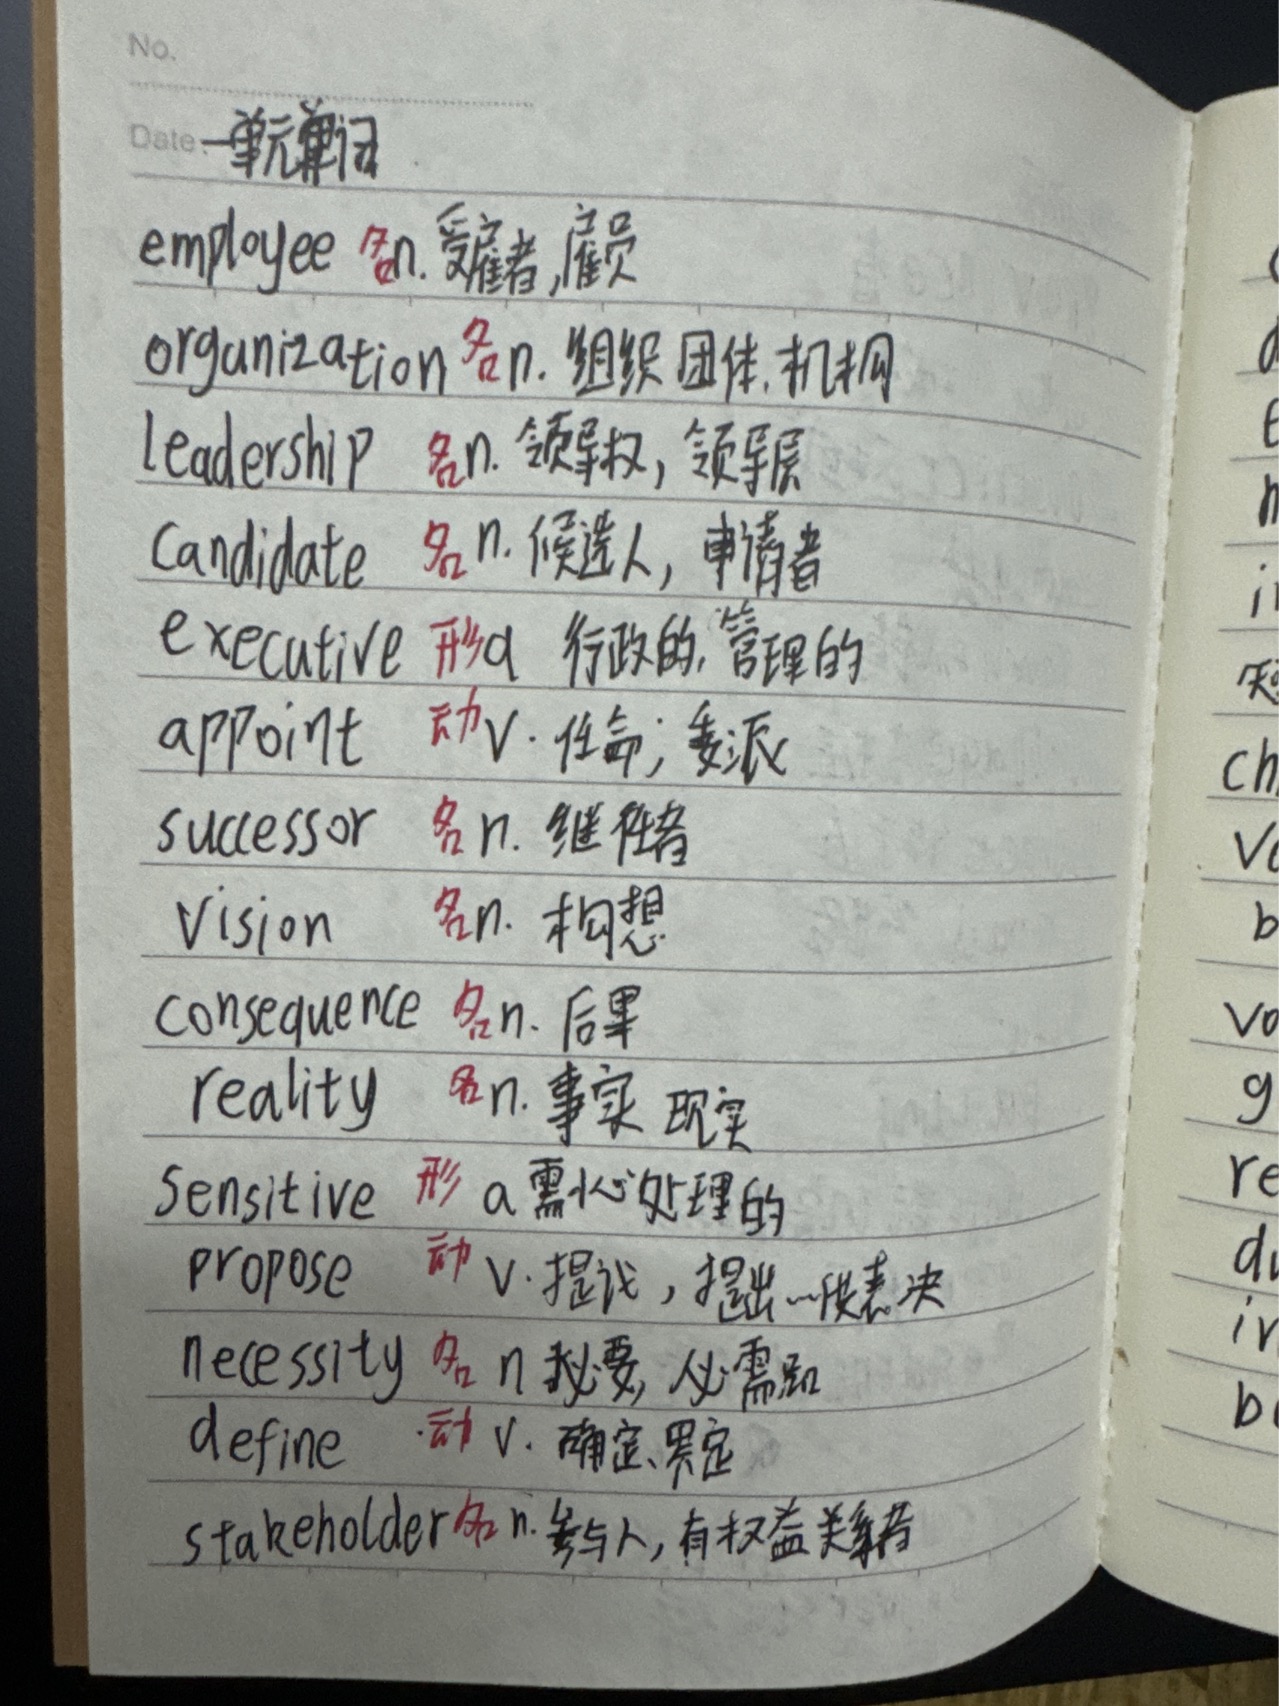 No.
Date: 一单元单词
employee 名n. 受雇者,雇员
organization 名n. 组织 团体、机构
leadership 名n. 领导权, 领导层
candidate 名n. 候选人, 申请者
executive 形a 行政的, 管理的
appoint 动v. 任命; 委派
successor 名n. 继任者
vision 名n. 构想
consequence 名n. 后果
reality 名n. 事实 现实
sensitive 形 a 需小心处理的
propose 动 v. 提议, 提出…供表决
necessity 名 n 必要, 必需品
define 动 v. 确定、界定
stakeholder 名 n. 参与人, 有权益关系者